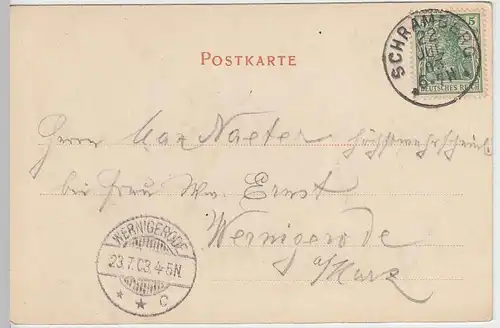 POSTKARTE
SCHRAMBERG
22
JUL
03
6-7N
5
DEUTSCHES REICH
Herrn Max Naeter
bei Frau Ww. Ernst
Wernigerode
a/Harz
WERNIGERODE
23.7.03.4-5N
* * C